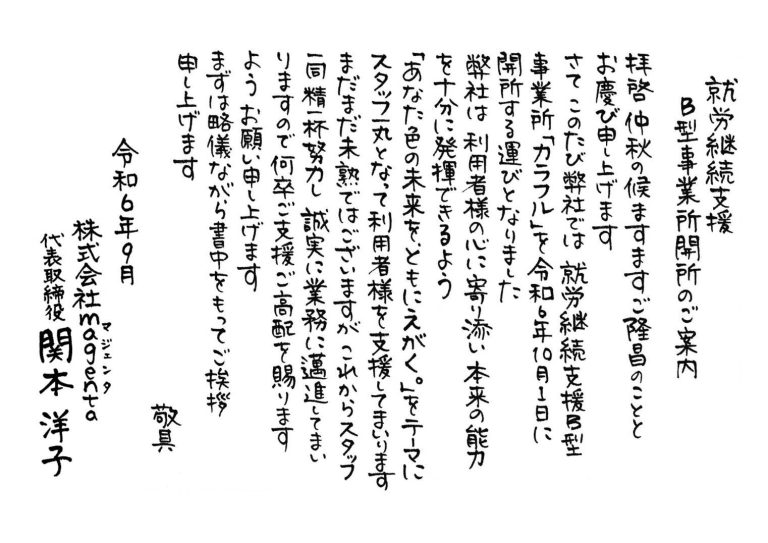 就労継続支援
B型事業所開所のご案内
拝啓 仲秋の候ますますご隆昌のことと
お慶び申し上げます
さて このたび弊社では 就労継続支援B型
事業所「カラフル」を令和6年10月1日に
開所する運びとなりました
弊社は 利用者様の心に寄り添い 本来の能力
を十分に発揮できるよう
「あなた色の未来を、ともにえがく。」をテーマに
スタッフ一丸となって利用者様を支援してまいります
まだまだ未熟ではございますが これからスタッフ
一同 精一杯努力し 誠実に業務に邁進してまい
りますので 何卒ご支援ご高配を賜ります
よう お願い申し上げます
まずは略儀ながら書中をもってご挨拶
申し上げます
敬具
令和6年9月
株式会社magenta
マジェンタ
代表取締役 関本 洋子